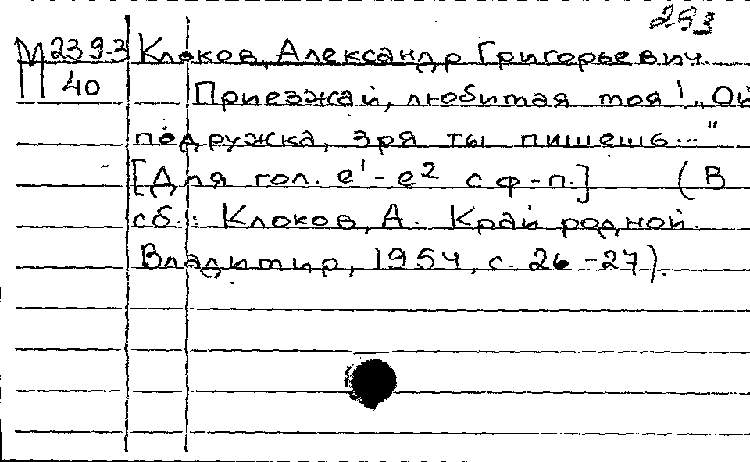 293
М 239-3 Клоков, Александр Григорьевич.
40 Приезжай, любимая моя! „Ой
подружка, зря ты пишешь..."
[Для гол. e¹-e² с ф-п.] (В
сб.: Клоков, А. Край родной.
Владимир, 1954, с. 26-27).